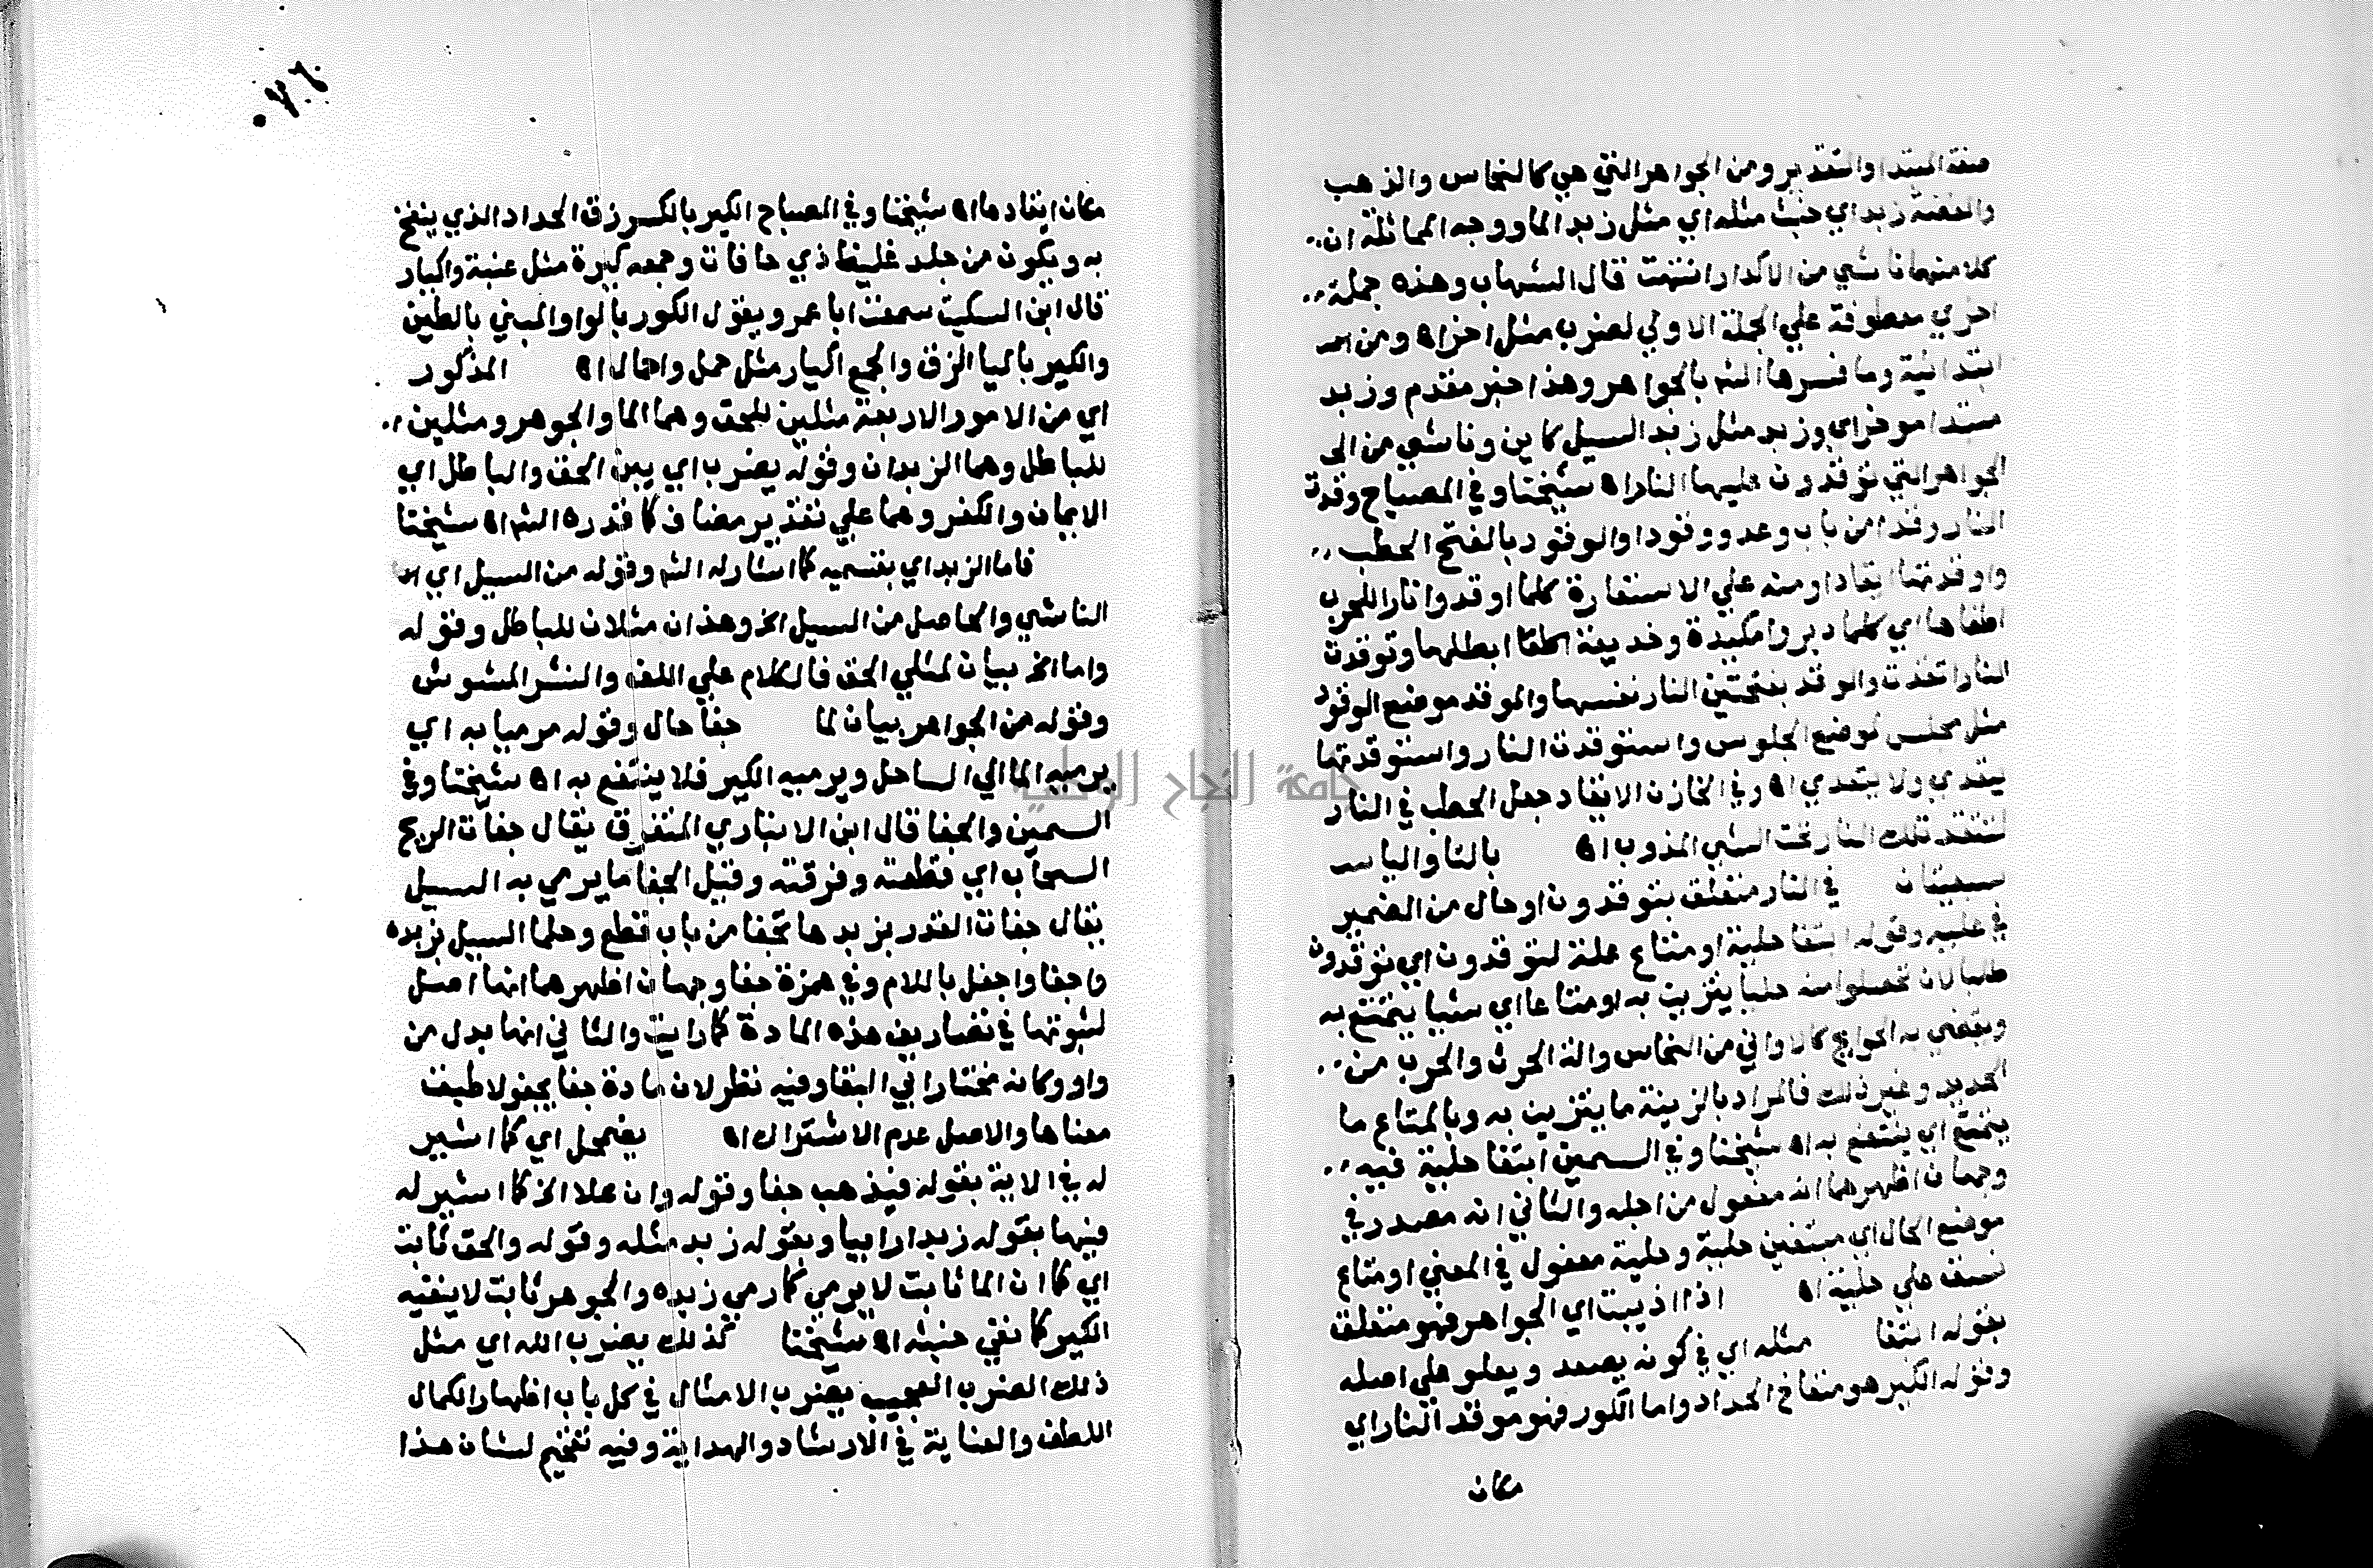 صفة المبتدا والتقدير ومن الجواهر التي هي كالنحاس والذهب
والفضة زبد اي خبث مثله اي مثل زبد الما ووجه المماثلة ان
كلا منهما ناشي من الاكدار انتهت قال الشهاب وهذه جملة
اخري معطوفة علي الجملة الاولي لضرب مثل اخر اه ومن
ابتدائية وما فسرها الشم بالجواهر وهذا خبر مقدم وزبد
مبتدا موخر اي وزبد مثل زبد السيل كاين وناشي من
الجواهر التي توقدون عليها النار اه شيخنا وفي المصباح وقدت
النار وقدا من باب وعد ووقودا والوقود بالفتح الحطب
واوقدتها ايقادا ومنه علي الاستعارة كلما اوقدوا نارا للحرب
اطفاها اي كلما دبروا مكيدة وخديعة ابطلها وتوقدت
النار اتقدت والوقد بفتحتين النار نفسها والموقد موضع الوقود
مثل مجلس لموضع الجلوس واستوقدت النار واستوقدتها
يتعدي ولا يتعدي اه وفي الخازن الايقاد جعل الحطب في النار
لتتقد تلك النار تحت الشي المذوب اه بالتا واليا
سبعيتان في النار متعلق بتوقدون او حال من الضمير
في عليه وقوله ابتغا حلية او متاع علة لتوقدون اي توقدون
طلبا لان تحصلوا منه حليا يتزين به او متاعا اي شيا يتمتع به
ويقضي به الحوايج كالاواني من النحاس والة الحرث والحرب من
الحديد وغير ذلك فالمراد بالزينة ما يتزين به وبالمتاع ما
يتمتع اي ينتفع به اه شيخنا وفي السمين ابتغا حلية فيه
وجهان اظهرهما انه مفعول من اجله والثاني انه مصدر في
موضع الحال اي مبتغين حلية وحلية مفعول في المعني او متاع
نسق علي حلية اه اذا اذيبت اي الجواهر فهو متعلق
بقوله ابتغا مثله اي في كونه يصعد ويعلو علي اصله
وقوله الكير هو منفاخ الحداد واما الكور فهو موقد النار اي
مكان
مكان ايقادها اه شيخنا وفي المصباح الكير بالكسر زق الحداد الذي ينفخ
به ويكون من جلد غليظ ذي حافات وجمعه كيرة مثل عنبة واكيار
قال ابن السكيت سمعت ابا عمرو يقول الكور بالواو المبني بالطين
والكير باليا الزق والجمع اكيار مثل حمل واحمال اه المذكور
اي من الامور الاربعة مثلين للحق وهما الما والجوهر ومثلين
للباطل وهما الزبدان وقوله يضرب اي يبين الحق والباطل اي
الايمان والكفر وهما علي تقدير مضاف كما قدره الشم اه شيخنا
فاما الزبد اي بقسميه كما اشار له الشم وقوله من السيل اي
الناشي والحاصل من السيل الخ وهذان مثلان للباطل وقوله
واما الخ بيان لمثلي الحق فالكلام علي اللف والنشر المشوش
وقوله من الجواهر بيان لما جفا حال وقوله مرميا به اي
يرميه الما الي الساحل ويرميه الكير فلا ينتفع به اه شيخنا وفي
السمين والجفا قال ابن الانباري المتفرق يقال جفات الريح
السحاب اي قطعته وفرقته وقيل الجفا ما يرمي به السيل
يقال جفات القدر بزبدها تجفا من باب قطع وجفا السيل بزبده
واجفا واجفل باللام وفي همزة جفا وجهان اظهرهما انها اصل
لثبوتها في تصاريف هذه المادة كما رايت والثاني انها بدل من
واو وكانه مختار ابي البقا وفيه نظر لان مادة جفا يجفو لا يليق
معناها والاصل عدم الاشتراك اه يضمحل اي كما اشير
له في الاية بقوله فيذهب جفا وقوله وان علا الخ كما اشير له
فيها بقوله زبدا رابيا وبقوله زبد مثله وقوله والحق ثابت
اي كما ان الما ثابت لا يرمي كما رمي زبده والجوهر ثابت لا ينفيه
الكير كما نفي خبثه اه شيخنا كذلك يضرب الله اي مثل
ذلك الضرب العجيب يضرب الامثال في كل باب اظهار الكمال
اللطف والعناية في الارشاد والهداية وفيه تفخيم لشان هذا
جامعة النجاح الوطنية